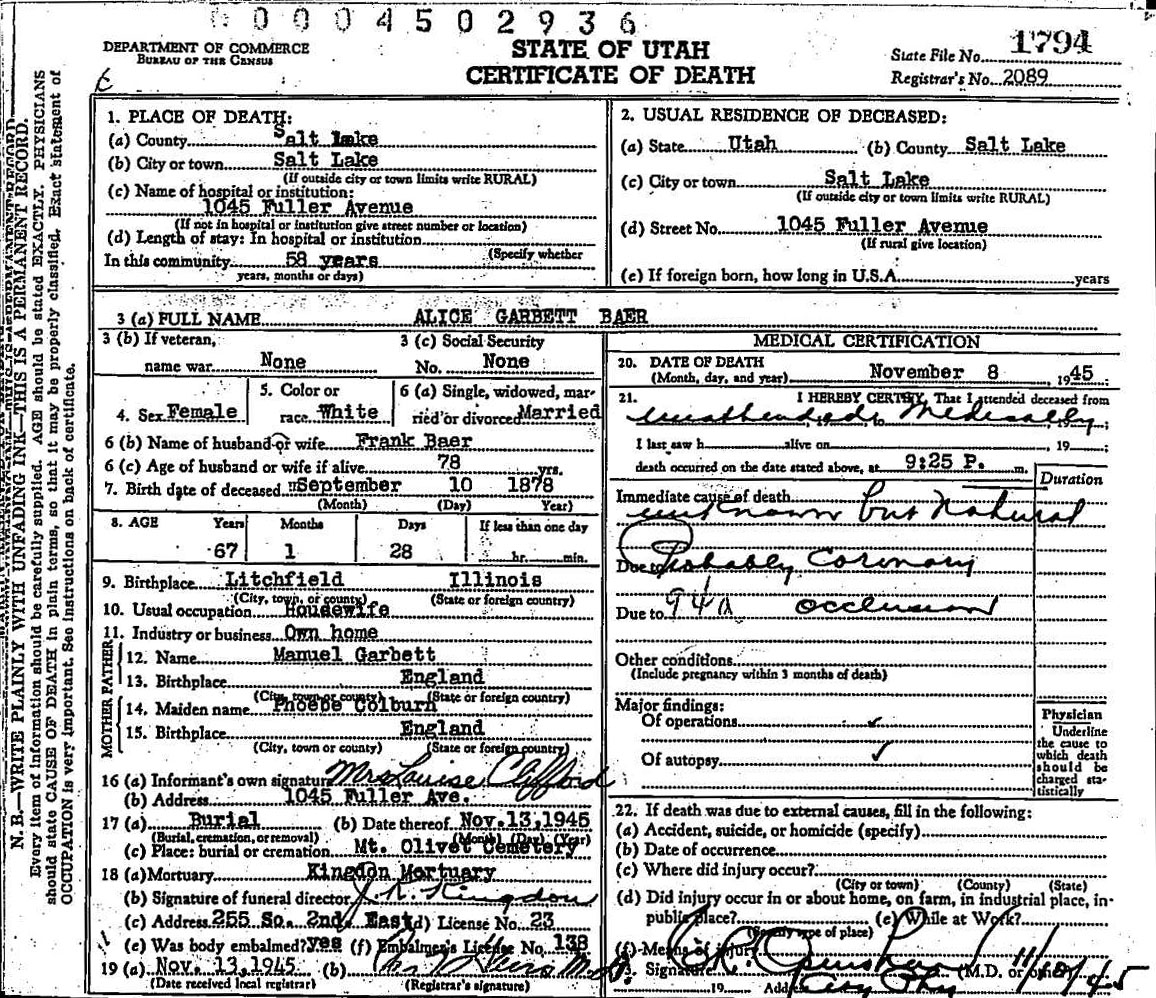 0004502936
DEPARTMENT OF COMMERCE
BUREAU OF THE CENSUS
STATE OF UTAH
CERTIFICATE OF DEATH
State File No. 1794
Registrar's No. 2089
N. B.—WRITE PLAINLY WITH UNFADING INK—THIS IS A PERMANENT RECORD.
Every item of information should be carefully supplied. AGE should be stated EXACTLY. PHYSICIANS
should state CAUSE OF DEATH in plain terms, so that it may be properly classified. Exact statement of
OCCUPATION is very important. See instructions on back of certificate.
1. PLACE OF DEATH:
(a) County Salt Lake
(b) City or town Salt Lake
(If outside city or town limits write RURAL)
(c) Name of hospital or institution:
1045 Fuller Avenue
(If not in hospital or institution give street number or location)
(d) Length of stay: In hospital or institution
(Specify whether
In this community 58 years
years, months or days)
2. USUAL RESIDENCE OF DECEASED:
(a) State Utah (b) County Salt Lake
(c) City or town Salt Lake
(If outside city or town limits write RURAL)
(d) Street No. 1045 Fuller Avenue
(If rural give location)
(e) If foreign born, how long in U.S.A. years
3 (a) FULL NAME ALICE GARBETT BAER
3 (b) If veteran,
name war None
3 (c) Social Security
No. None
4. Sex Female
5. Color or
race White
6 (a) Single, widowed, mar-
ried or divorced Married
6 (b) Name of husband or wife Frank Baer
6 (c) Age of husband or wife if alive 78 yrs.
7. Birth date of deceased September 10 1878
(Month) (Day) Year)
8. AGE Years Months Days If less than one day
67 1 28 hr. min.
9. Birthplace Litchfield Illinois
(City, town, or county) (State or foreign country)
10. Usual occupation Housewife
11. Industry or business Own home
FATHER
12. Name Manuel Garbett
13. Birthplace England
(City, town or county) (State or foreign country)
MOTHER
14. Maiden name Phoebe Colburn
15. Birthplace England
(City, town or county) (State or foreign country)
16 (a) Informant's own signature Mrs Louise Clifford
(b) Address 1045 Fuller Ave.
17 (a) Burial (b) Date thereof Nov.13,1945
(Burial, cremation, or removal) (Month) (Day) (Year)
(c) Place: burial or cremation Mt. Olivet Cemetery
18 (a) Mortuary Kingdon Mortuary
(b) Signature of funeral director J. K. Kingdon
(c) Address 255 So. 2nd East (d) License No. 23
(e) Was body embalmed? yes (f) Embalmer's License No. 138
19 (a) Nov. 13,1945 (b)
(Date received local registrar) (Registrar's signature)
MEDICAL CERTIFICATION
20. DATE OF DEATH
(Month, day, and year) November 8, 1945
21. I HEREBY CERTIFY, That I attended deceased from
unattended Medically
I last saw h alive on 19 ;
death occurred on the date stated above, at 9:25 P. m.
Duration
Immediate cause of death
unknown but Natural
Due to Probably Coronary
Due to 94a occlusion
Other conditions
(Include pregnancy within 3 months of death)
Major findings:
Of operations ✓
Of autopsy ✓
Physician
Underline
the cause to
which death
should be
charged sta-
tistically
22. If death was due to external causes, fill in the following:
(a) Accident, suicide, or homicide (specify)
(b) Date of occurrence
(c) Where did injury occur?
(City or town) (County) (State)
(d) Did injury occur in or about home, on farm, in industrial place, in-
public place? (e) While at Work?
(Specify type of place)
(f) Means of injury
23. Signature (M.D. or other) 11/8/45
19 Address City Phy